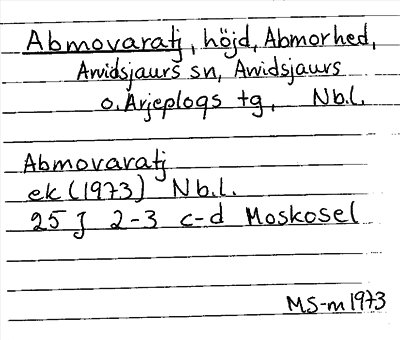 Abmovaratj, höjd, Abmorhed,
Arvidsjaurs sn, Arvidsjaurs
o. Arjeplogs tg, Nb.l.
Abmovaratj
ek (1973) Nb.l.
25 J 2-3 c-d Moskosel
MS-m 1973